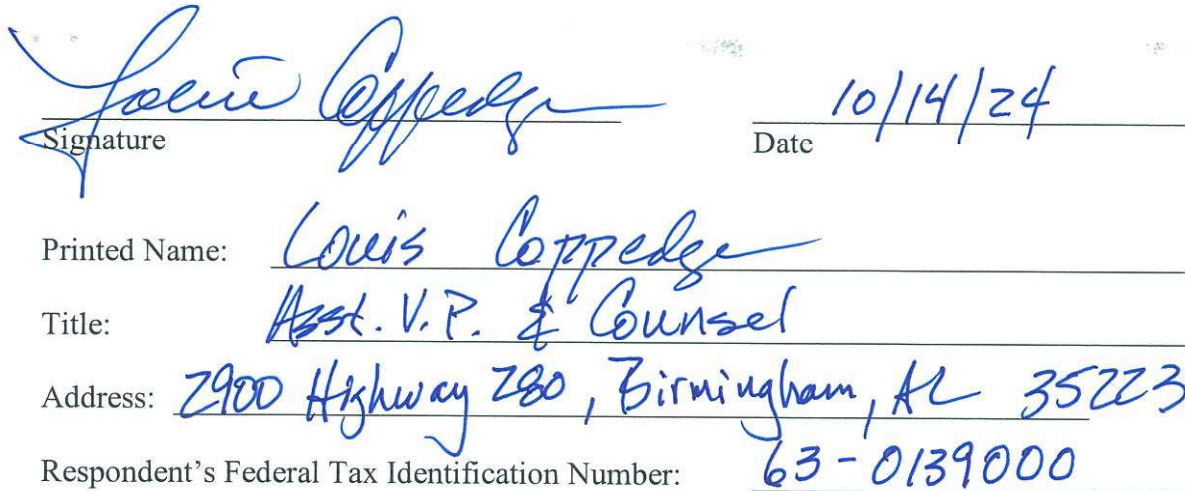 Louis Coppedge 10/14/24
Signature Date
Printed Name: Louis Coppedge
Title: Asst. V.P. & Counsel
Address: 2900 Highway 280, Birmingham, AL 35223
Respondent's Federal Tax Identification Number: 63-0139000